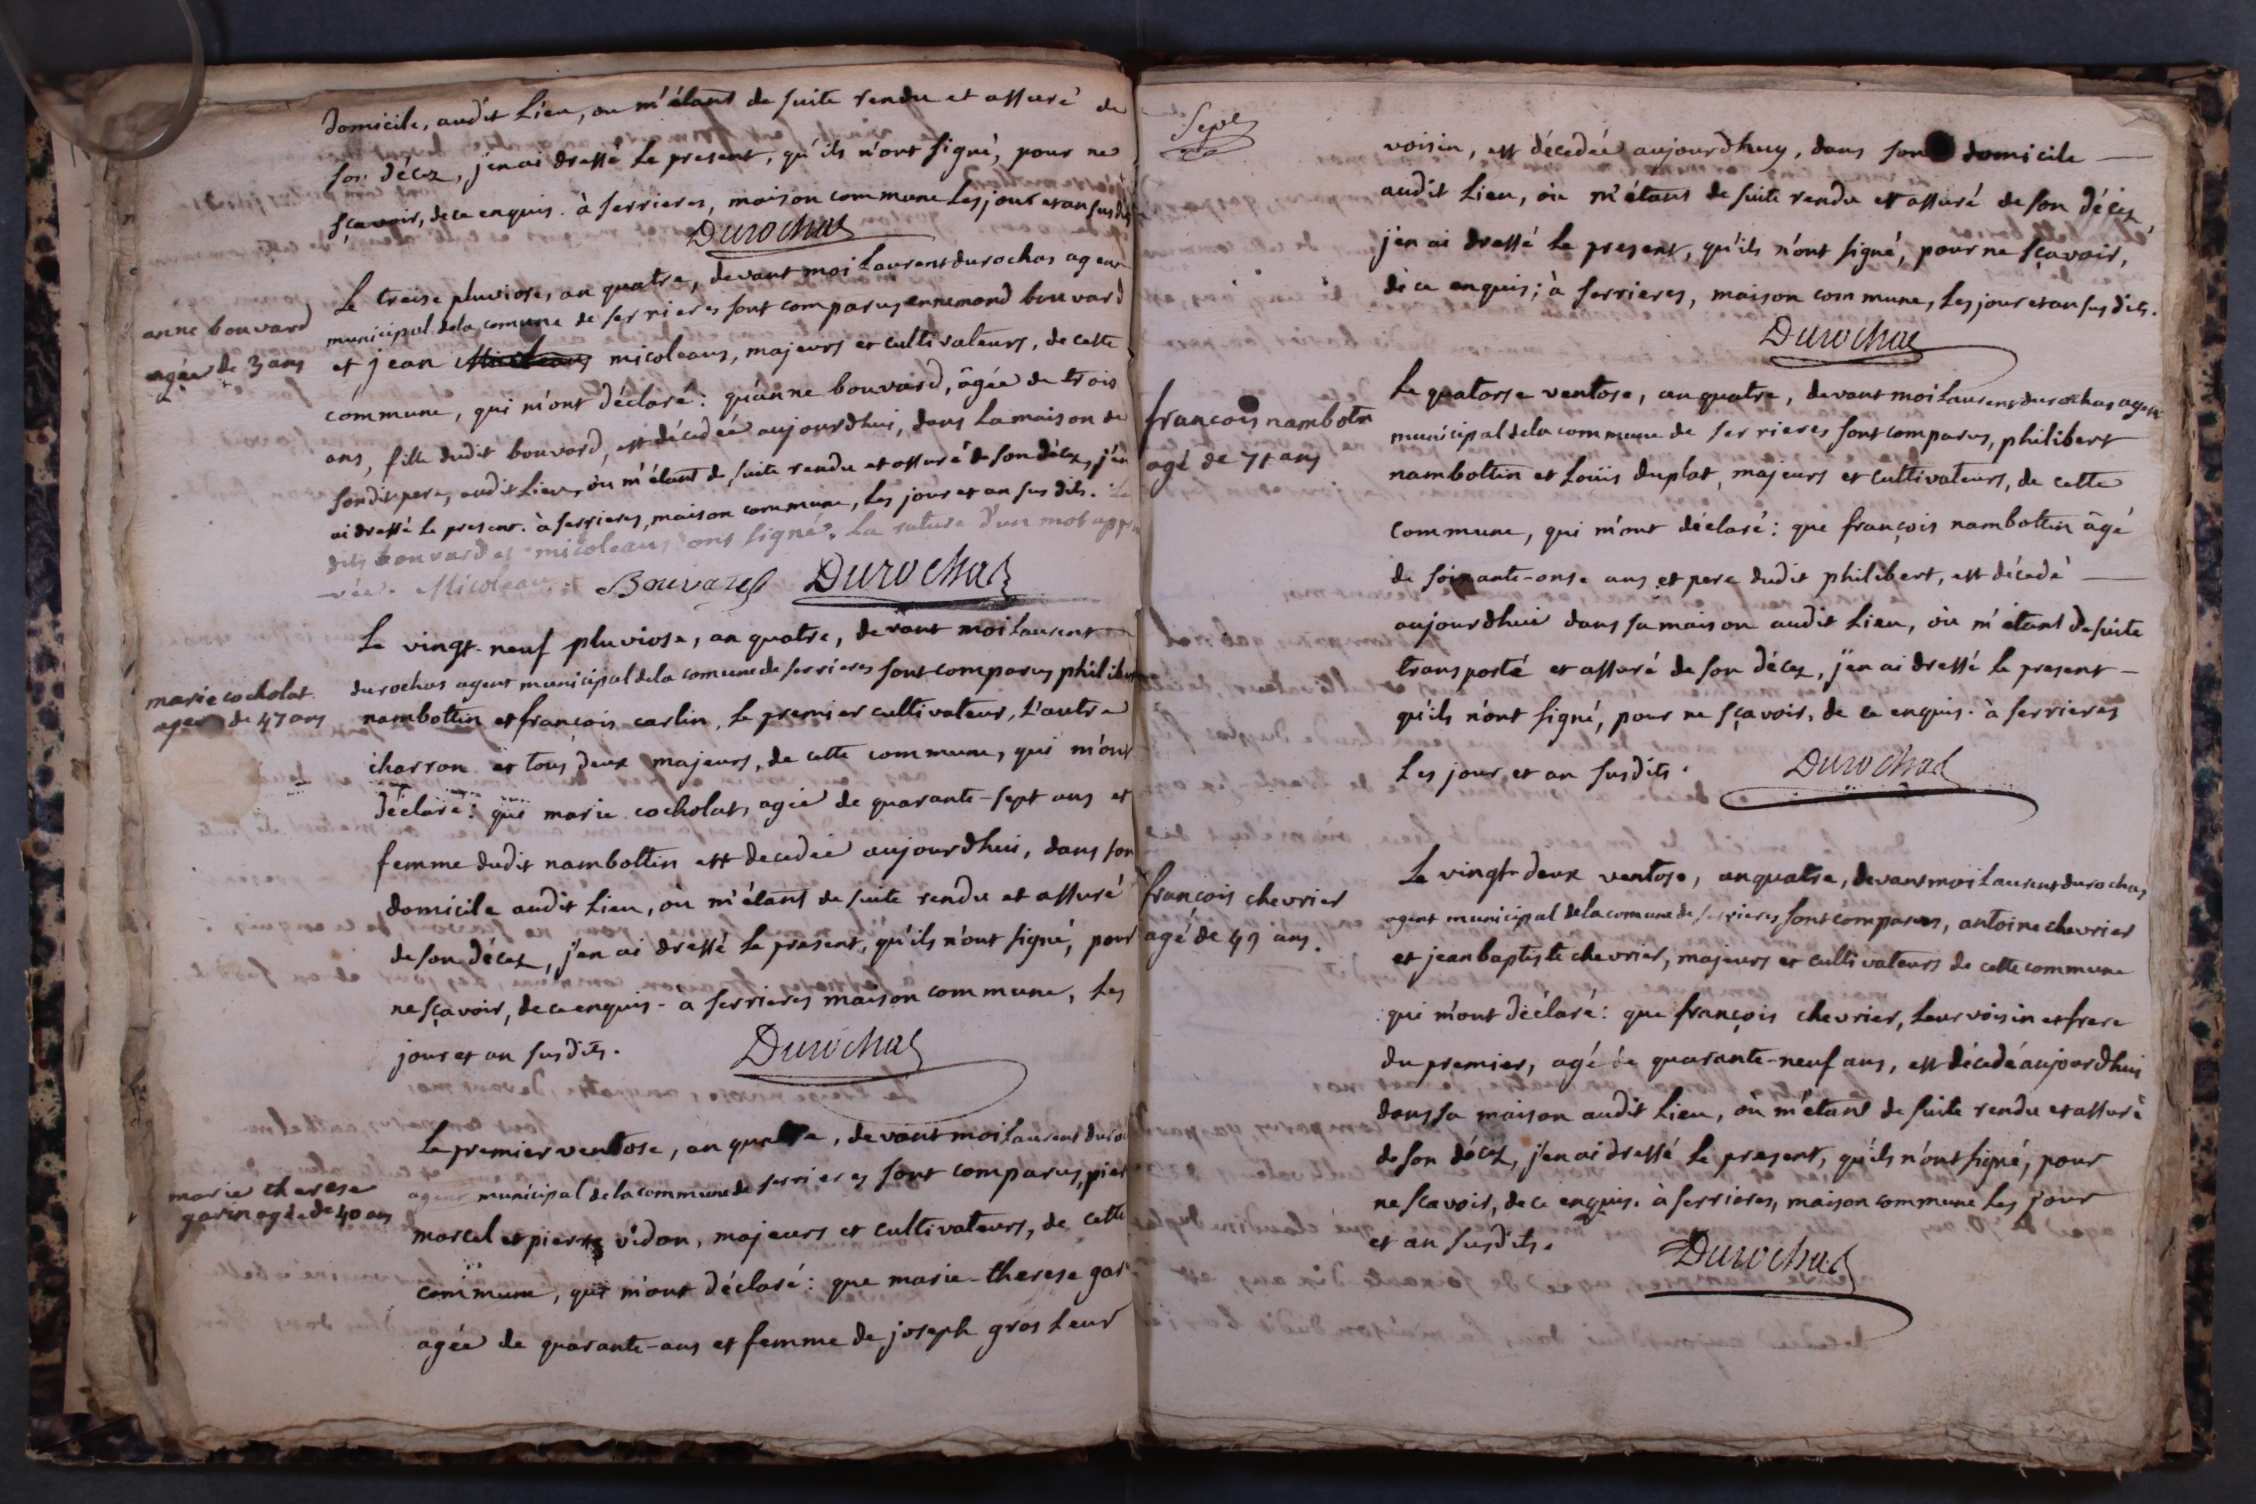 domicile, audit Lieu, ou m'étant de suite rendu et assuré de
son décez, j'en ai dressé Le present, qu'ils n'ont signé, pour ne
sçavoir, de ce enquis. à serrieres, maison commune Les jour et an susdits
Durochas
anne bouvard
agée de 3 ans
Le treise pluviose, an quatre, devant moi Laurent durochas agent
municipal de la comune de serrieres sont comparus ennemond bouvard
et jean micoleaus, majeurs et cultivateurs, de cette
commune, qui m'ont déclaré: qu'anne bouvard, âgée de trois
ans, fille dudit bouvard, est décedée aujourdhui, dans La maison de
sondit pere, audit Lieu, où m'étant de suite rendu et assuré de son décez, j'en
ai dressé Le present. à serrieres, maison commune, Les jour et an susdits. Les
dits bouvard et micoleaus ont signé. La rature d'un mot approu
vée. Micoleau Bouvard Durochas
marie cocholat
agée de 47 ans
Le vingt-neuf pluviose, an quatre, devant moi Laurent
durochas agent municipal de la comune de serrieres sont comparus philibert
nambottin et françois carlin, Le premier cultivateur, L'autre
charron et tous deux majeurs, de cette commune, qui m'ont
déclaré: que marie cocholat, agée de quarante-sept ans et
femme dudit nambottin est decedée aujourdhui, dans son
domicile audit Lieu, où m'étant de suite rendu et assuré
de son décez, j'en ai dressé Le present, qu'ils n'ont signé, pour
ne sçavoir, de ce enquis - a serrieres maison commune, Les
jour et an susdits.
Durochas
marie therese
garin agée de 40 ans
Le premier ventose, an quatre, devant moi Laurent duroc
agent municipal de la commune de serrieres sont comparus, pier
marcel et pierre vidon, majeurs et cultivateurs, de cette
commune, qui m'ont déclaré: que marie-therese gar
agée de quarante-ans et femme de joseph gros Leur
Sept
voisin, est décedée aujourdhuy, dans son domicile —
audit Lieu, où m'étant de suite rendu et assuré de son décez
j'en ai dressé Le present, qu'ils n'ont signé, pour ne sçavoir,
de ce enquis; à serrieres, maison commune, Les jour et an susdits.
Durochas
francois nambotin
agé de 71 ans
Le quatorse ventose, an quatre, devant moi Laurent durochas agent
municipal de la commune de serrieres sont comparus, philibert
nambottin et Louis duplat, majeurs et cultivateurs, de cette
commune, qui m'ont déclaré: que françois nambottin âgé
de soixante-onse ans et pere dudit philibert, est décedé —
aujourdhui dans sa maison audit Lieu, où m'étant de suite
transporté et assuré de son décez, j'en ai dressé Le present —
qu'ils n'ont signé, pour ne sçavoir, de ce enquis. à serrieres
Les jour et an susdits. Durochas
françois chevrier
agé de 49 ans.
Le vingt-deux ventose, an quatre, devant moi Laurent durochas
agent municipal de la comune de serrieres sont comparus, antoine chevrier
et jean baptiste chevrier, majeurs et cultivateurs de cette commune
qui m'ont déclaré: que françois chevrier, Leur voisin et frere
du premier, agé de quarante-neuf ans, est décedé aujourdhui
dans sa maison audit Lieu, où m'étant de suite rendu et assuré
de son décez, j'en ai dressé Le present, qu'ils n'ont signé, pour
ne scavoir, de ce enquis. à serrieres, maison commune Les jour
et an susdits.
Durochas